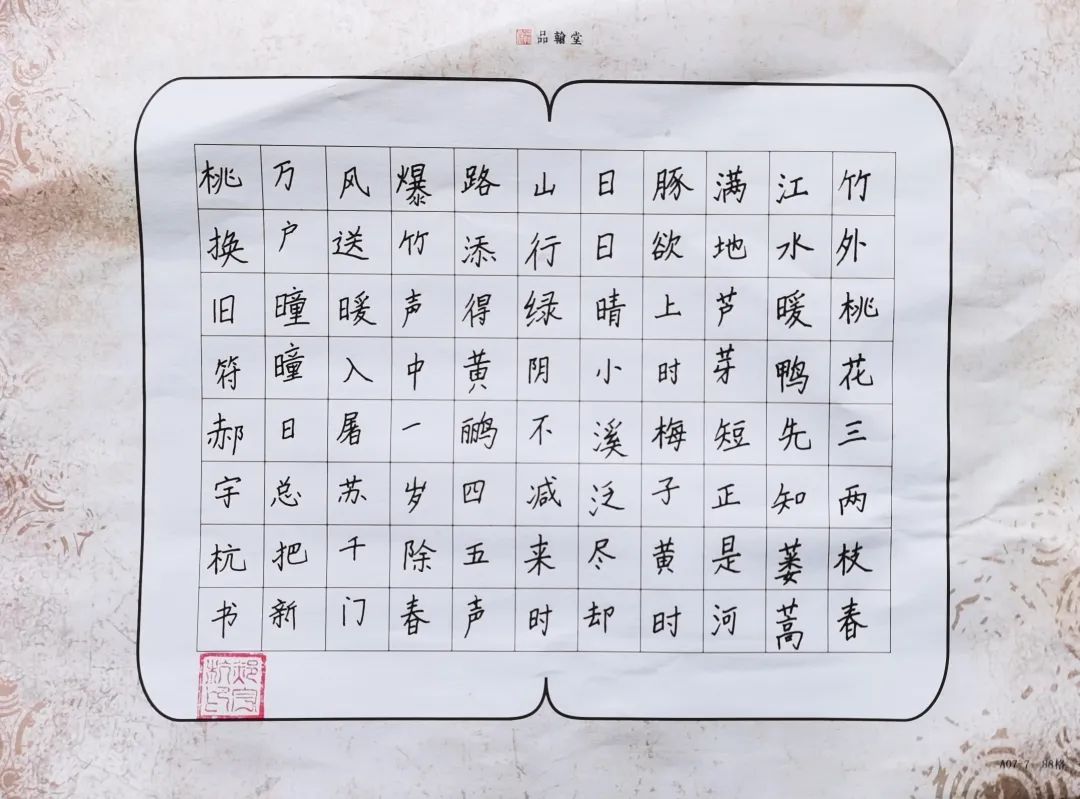 品翰堂
竹外桃花三两枝春
江水暖鸭先知蒌蒿
满地芦芽短正是河
豚欲上时梅子黄时
日日晴小溪泛尽却
山行绿阴不减来时
路添得黄鹂四五声
爆竹声中一岁除春
风送暖入屠苏千门
万户曈曈日总把新
桃换旧符郝宇杭书
郝宇杭印
A07-7 88格